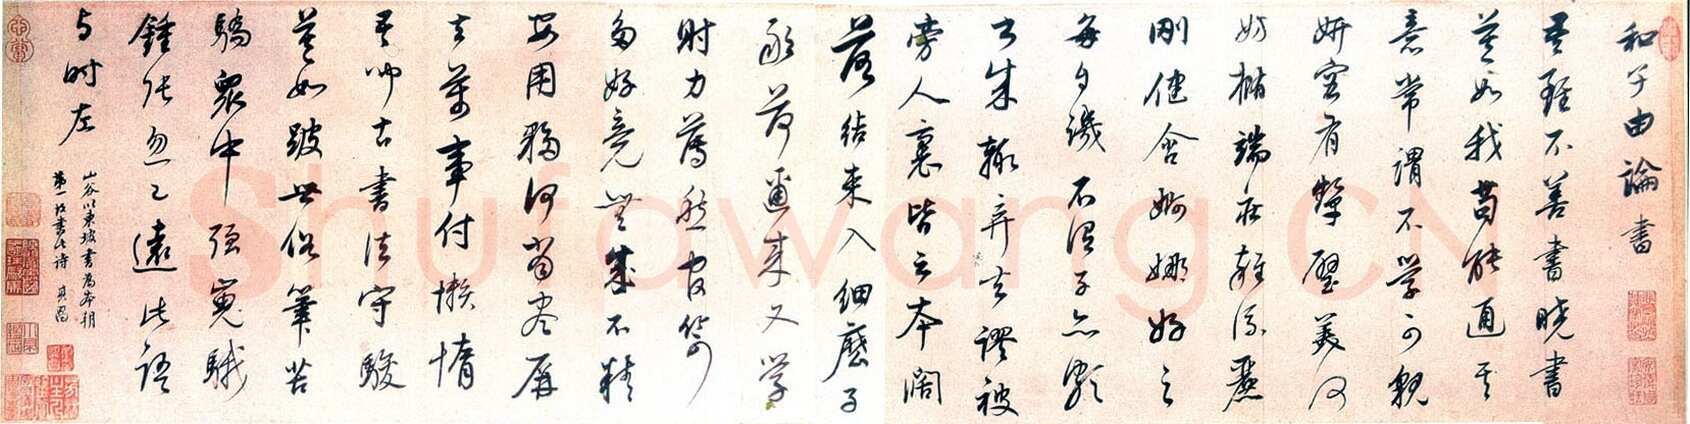 和子由論書
吾雖不善書曉書
莫如我苟能通其
意常謂不學可貌
妍容有顰璧美何
妨橢端莊雜流麗
剛健含婀娜好之
每自譏不謂子亦頗
書成輒棄去謬被
旁人裹皆云本闊
落結束入細麼子
敢荷邇來又學
射力薄愁官笴
多好竟無成不精
安用夥何當盡屏
去萬事付懶惰
吾聞古書法守駿
莫如跛世俗筆苦
驕眾中強嵬騀
鍾張忽已遠此語
与时左
山谷以東坡書為本朝
第一故書此詩 其昌
Shufawang.CN